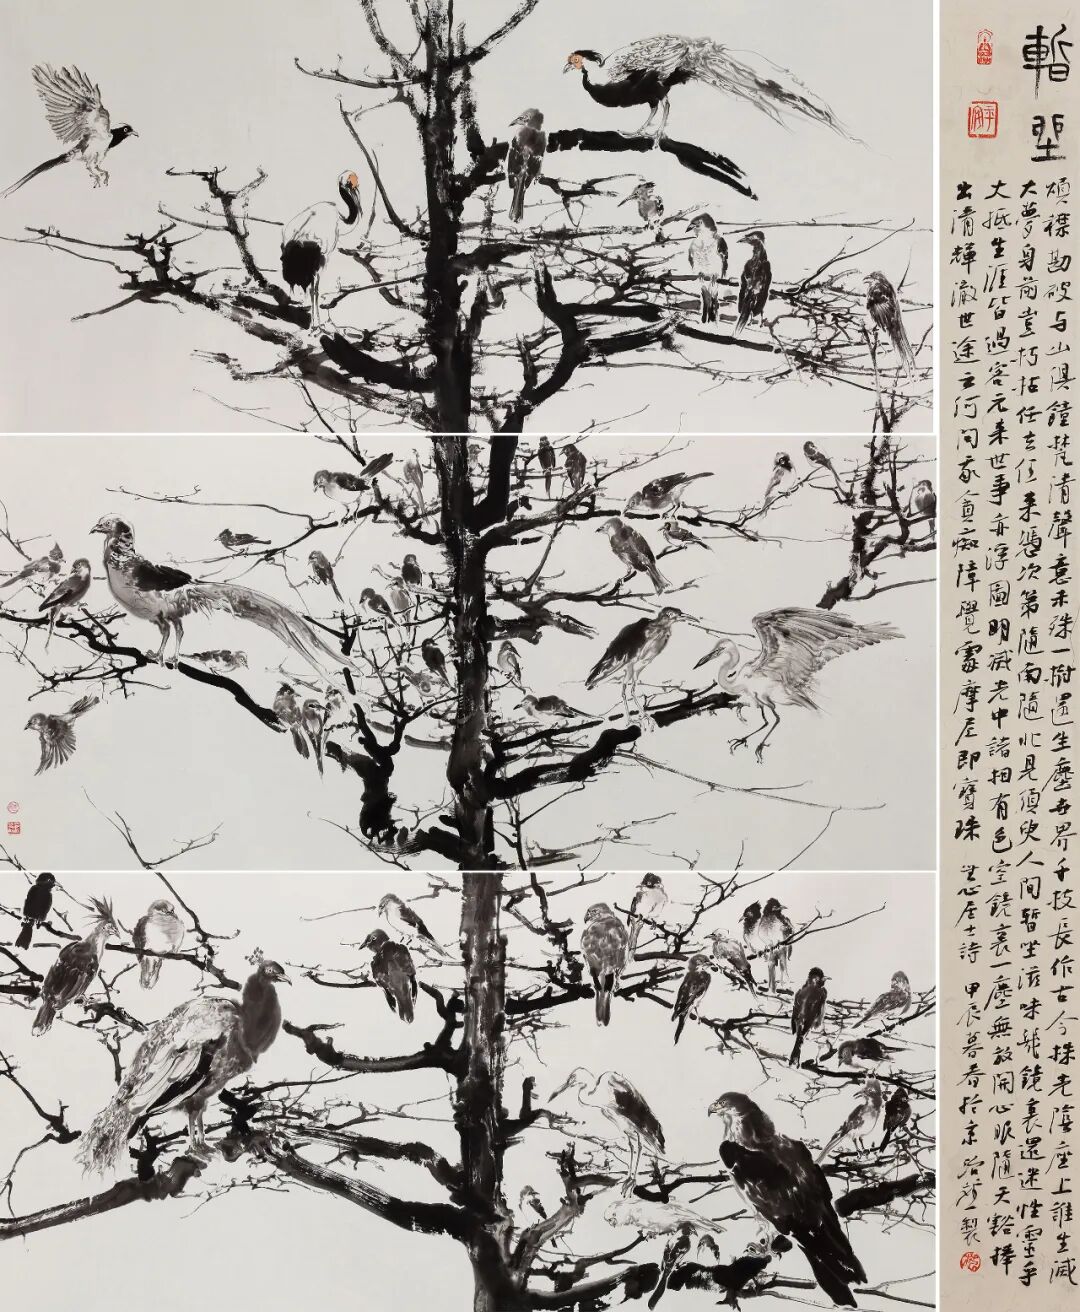 暫坐
煩襟勘破与山俱鐘梵清聲意未殊一樹還生塵世界千枝長作古今株老蔭座上誰生滅
大夢身前豈朽枯任去任来憑次第隨南隨北見須臾人間暫坐滋味哉鏡裏還迷性靈乎
大抵生涯皆過客元来世事亦浮圖明滅光中諸相有色空鏡裏一塵無放開心眼隨天豁捧
出清輝澈世途云何问我貪癡障覺處摩尼即寶珠 心居士詩 甲辰暮春於京 製